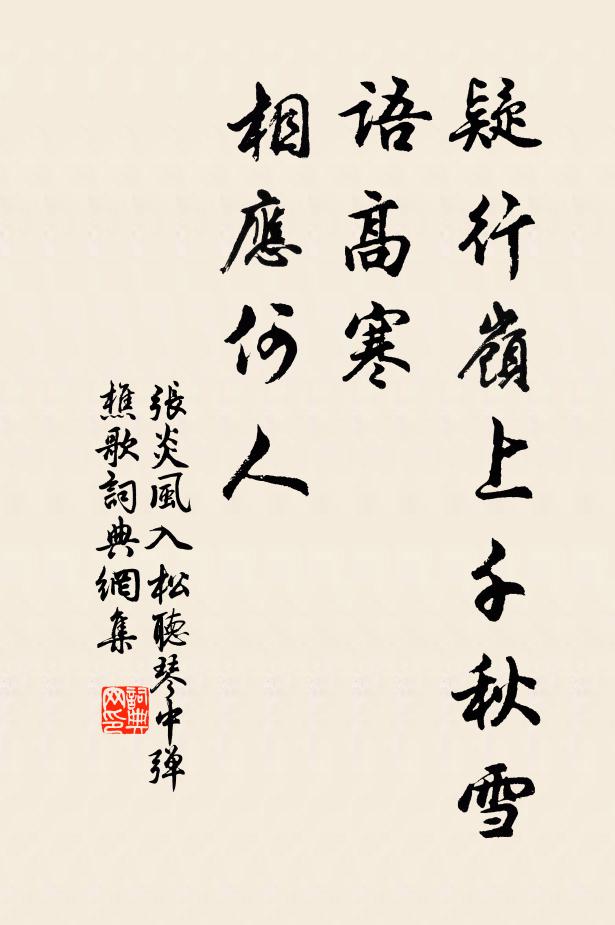 疑行嶺上千秋雪
語高寒
相應何人
張炎風入松聽琴中彈
樵歌詞典網集
詞典
网印